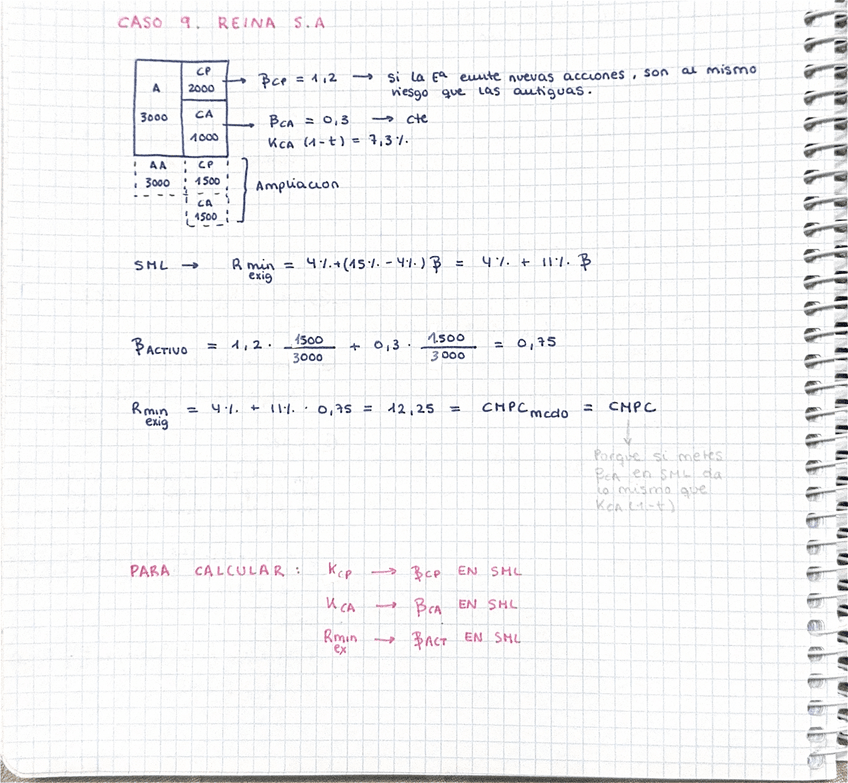 CASO 9. REINA S.A
A
3000
CP
2000
→ βCP = 1,2 → Si la Eª emite nuevas acciones, son al mismo
riesgo que las antiguas.
CA
1000
→ βCA = 0,3 → cte
KCA (1-t) = 7,3%.
AA
3000
CP
1500
CA
1500
Ampliacion
SML → Rmin exig = 4%+(15%-4%) β = 4% + 11% β
βACTIVO = 1,2 · 1500/3000 + 0,3 · 1.500/3000 = 0,75
Rmin exig = 4% + 11% · 0,75 = 12,25 = CMPCmcdo = CMPC
↓
Porque si metes
βCA en SML da
lo mismo que
KCA (1-t)
PARA CALCULAR: KCP → βCP EN SML
KCA → βCA EN SML
Rmin ex → βACT EN SML